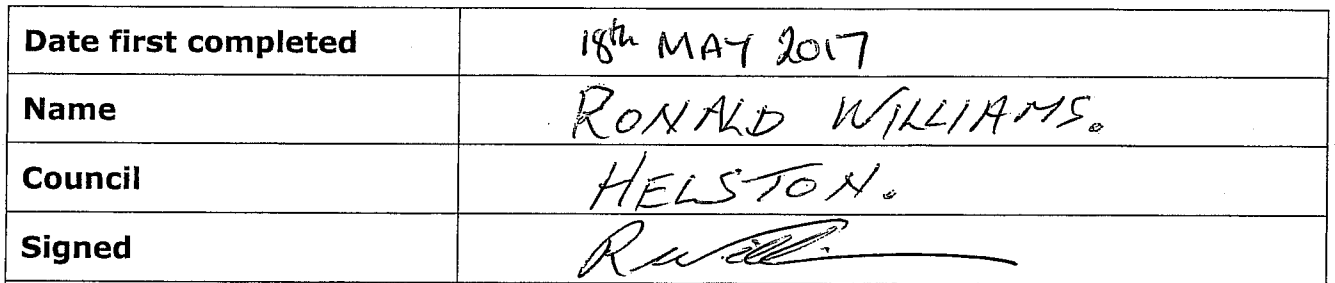 Date first completed 18th MAY 2017
Name RONALD WILLIAMS.
Council HELSTON.
Signed RWilli